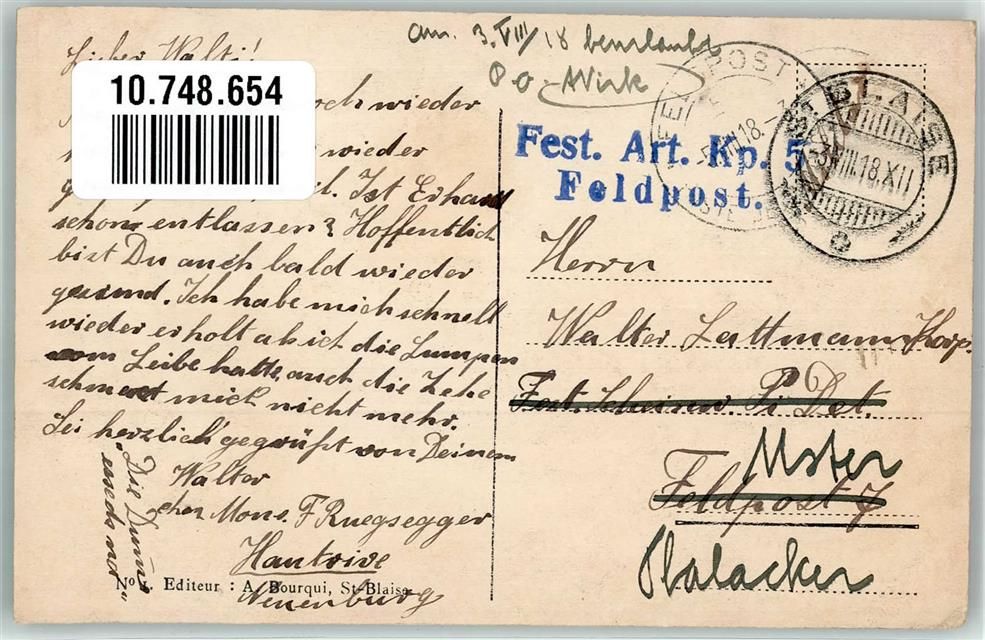 am. 3. VIII/18 beurlaubt
P. O.
Lieber Walti!
10.748.654
doch wieder
wieder
Ist Erhard
schon entlassen? Hoffentlich
bist Du auch bald wieder
gesund. Ich habe mich schnell
wieder erholt als ich die Lumpen
vom Leibe hatte, auch die Zehe
schmerzt mich nicht mehr.
Sei herzlich gegrüßt von Deinem
Walter
chez Mons. F Ruegsegger
Hautrive
Neuenburg
"Die Dum
No 1. Editeur : A. Bourqui, St-Blaise
FELDPOST
VIII.18.
ST. BLAISE
3.VIII.18.XII
Fest. Art. Kp. 5
Feldpost.
Herrn
Walter Lattmann, Korp.
Fest. Scheinw. Pi Det.
Uster
Feldpost 7